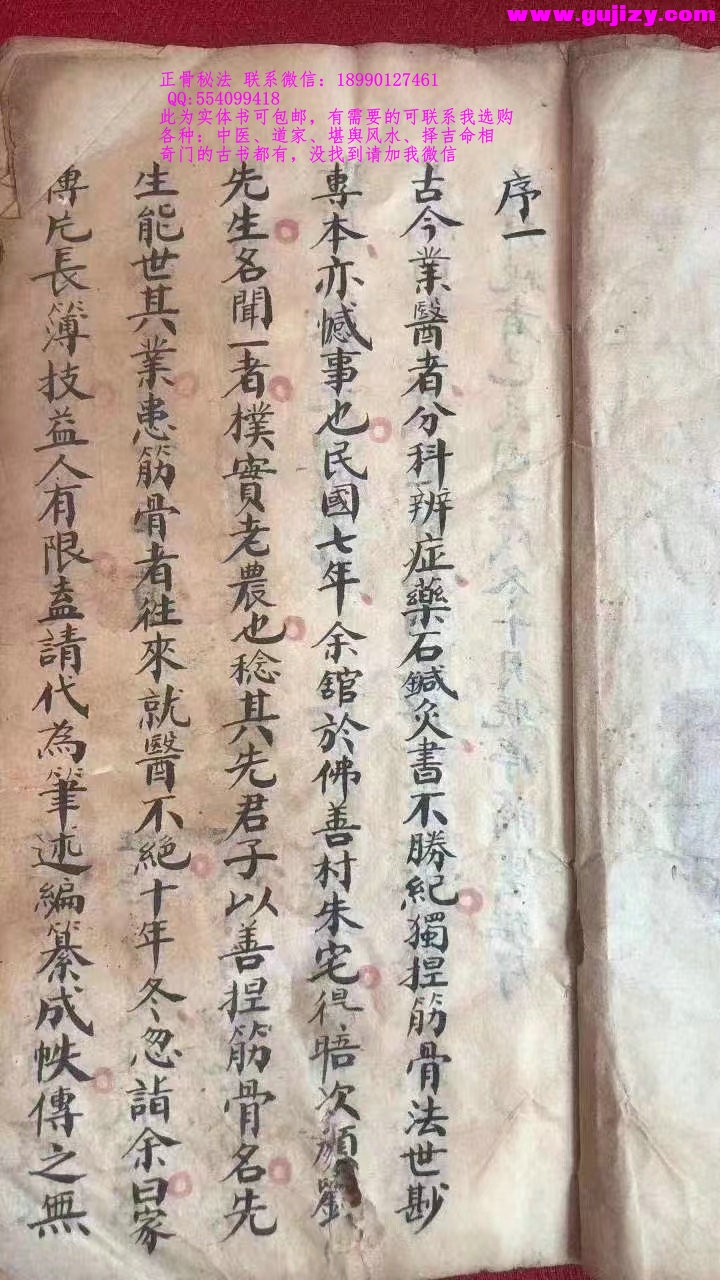 www.gujizy.com
正骨秘法 联系微信：18990127461
QQ:554099418
此为实体书可包邮，有需要的可联系我选购
各种：中医、道家、堪舆风水、择吉命相
奇门的古书都有，没找到请加我微信
序一
古今業醫者分科辨症藥石鍼灸書不勝紀獨捏筋骨法世尠
專本亦憾事也民國七年余舘於佛善村朱宅得晤次顔劉
先生名聞一者樸實老農也稔其先君子以善捏筋骨名先
生能世其業患筋骨者往來就醫不絕十年冬忽詣余曰家
傳片長簿技益人有限盍請代為筆述編纂成帙傳之無